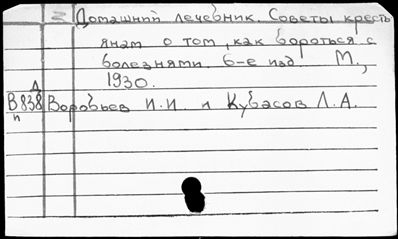 Домашний лечебник. Советы кресть
янам о том, как бороться с
болезнями. 6-е изд. М.,
1930.
Д
В838 Воробьев И.И. и Кубасов Л.А.
п